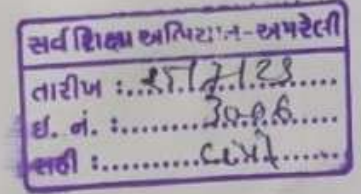 સર્વ શિક્ષા અભિયાન-અમરેલી
તારીખ :.....
ઈ. નં. :.....3006.....
સહી :.....